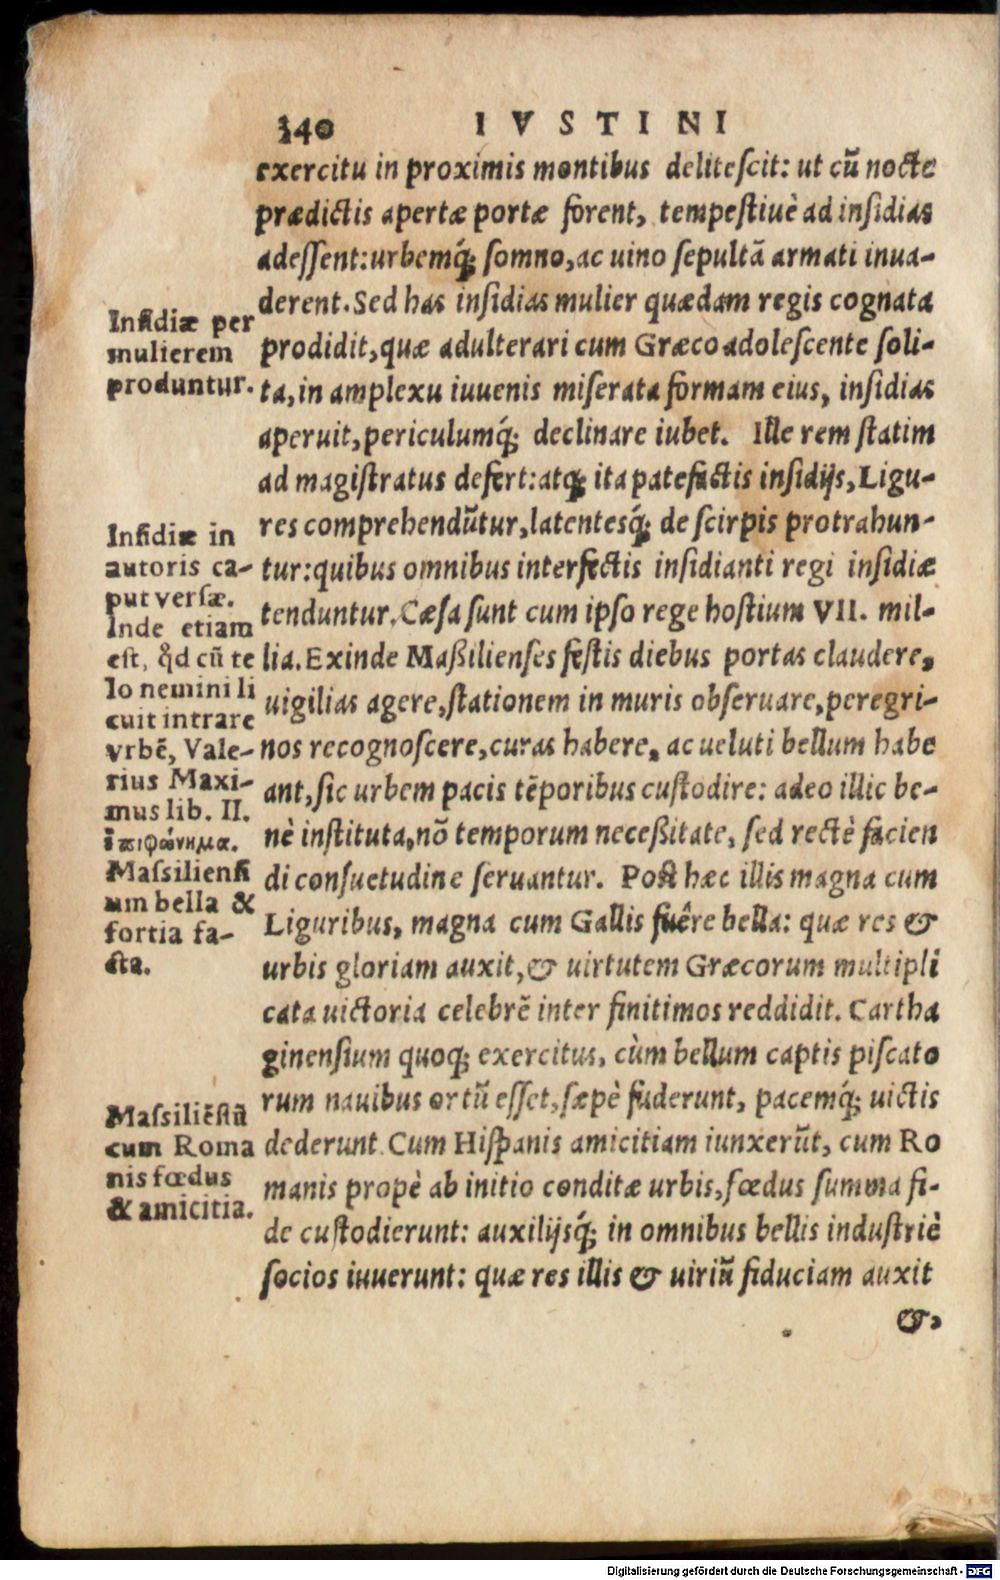 340 IVSTINI
exercitu in proximis montibus delitescit: ut cũ nocte
prædictis apertæ portæ forent, tempestiuè ad insidias
adessent: urbemq́; somno, ac uino sepultā armati inua-
derent. Sed has insidias mulier quædam regis cognata
prodidit, quæ adulterari cum Græco adolescente soli-
ta, in amplexu iuuenis miserata formam eius, insidias
aperuit, periculumq́; declinare iubet. Ille rem statim
ad magistratus defert: atq; ita patefactis insidijs, Ligu-
res comprehendũtur, latentesq́; de scirpis protrahun-
tur: quibus omnibus interfectis insidianti regi insidiæ
tenduntur. Cæsa sunt cum ipso rege hostium VII. mil-
lia. Exinde Maßilienses festis diebus portas claudere,
uigilias agere, stationem in muris obseruare, peregri-
nos recognoscere, curas habere, ac ueluti bellum habe
ant, sic urbem pacis tẽporibus custodire: adeo illic be-
nè instituta, nõ temporum neceßitate, sed rectè facien
di consuetudine seruantur. Post hæc illis magna cum
Liguribus, magna cum Gallis fuêre bella: quæ res &
urbis gloriam auxit, & uirtutem Græcorum multipli
cata uictoria celebrẽ inter finitimos reddidit. Cartha
ginensium quoq; exercitus, cùm bellum captis piscato
rum nauibus ortũ esset, sæpè fuderunt, pacemq́; uictis
dederunt. Cum Hispanis amicitiam iunxerũt, cum Ro
manis propè ab initio conditæ urbis, fœdus summa fi-
de custodierunt: auxilijsq́; in omnibus bellis industriè
socios iuuerunt: quæ res illis & uiriũ fiduciam auxit
&,
Insidiæ per
mulierem
produntur.
Insidiæ in
autoris ca-
put versæ.
Inde etiam
est, qd cũ te
lo nemini li
cuit intrare
vrbẽ, Vale-
rius Maxi-
mus lib. II.
ἐπιφώνημα.
Massiliensi
um bella &
fortia fa-
cta.
Massiliẽsiũ
cum Roma
nis fœdus
& amicitia.
Digitalisierung gefördert durch die Deutsche Forschungsgemeinschaft - DFG